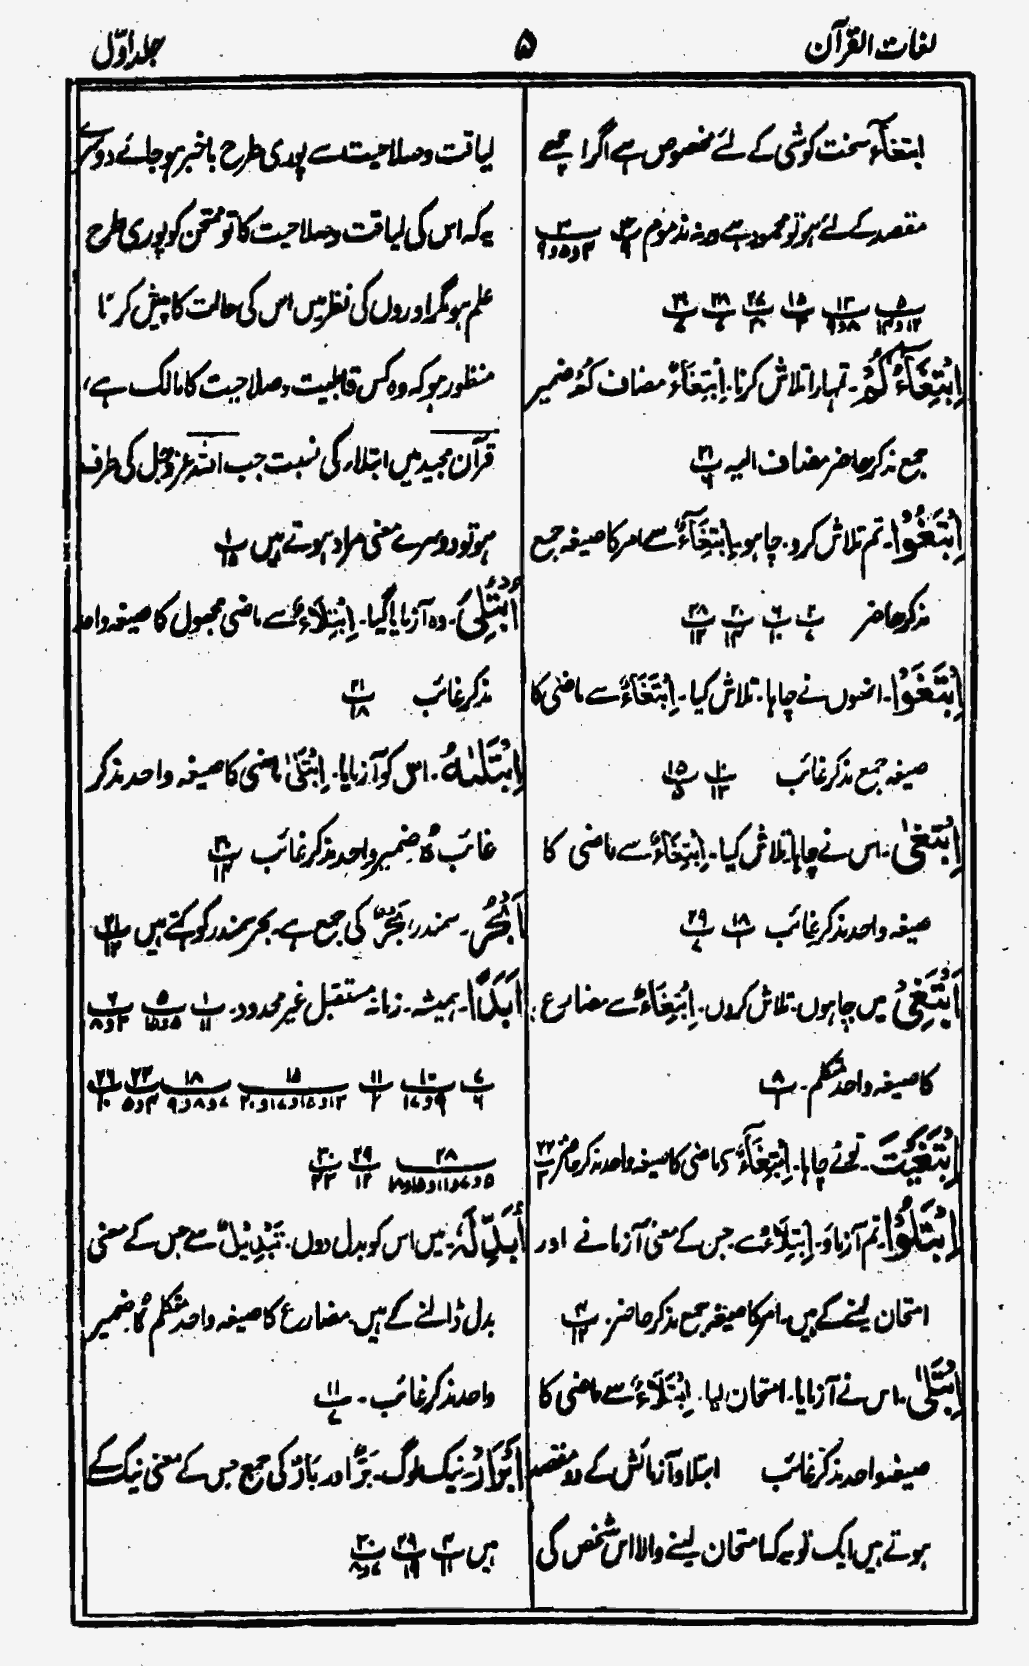 لغات القرآن
۵
جلد اوّل
ابتغآء سخت کوشی کے لئے مخصوص ہے اگر اچھے
مقصد کے لئے ہو تو محمود ہے ورنہ مذموم
اِبْتِغَآءُكُمْ۔ تمہارا تلاش کرنا۔ اِبْتِغَآءُ مضاف کُمْ ضمیر
جمع مذکر حاضر مضاف الیہ پ ۲۱ ۶
اِبْتَغُوْا۔ تم تلاش کرو۔ چاہو۔ اِبْتِغَآءٌ سے امر کا صیغہ جمع
مذکر حاضر پ ۲ ۷ پ ۶ ۱۰ پ ۲۰ ۱۴ پ ۲۸ ۱۲
اِبْتَغَوْا۔ انھوں نے چاہا۔ تلاش کیا۔ اِبْتِغَاءٌ سے ماضی کا
صیغہ جمع مذکر غائب پ ۱۰ ۱۳ پ ۱۵ ۵
اِبْتَغٰی۔ اس نے چاہا۔ تلاش کیا۔ اِبْتِغَاءٌ سے ماضی کا
صیغہ واحد مذکر غائب پ ۱۸ ۱ پ ۲۹ ۷
اَبْتَغِیْ میں چاہوں۔ تلاش کروں۔ اِبْتِغَاءٌ سے مضارع
کا صیغہ واحد متکلم۔ پ ۸ ۱
اِبْتَغَيْتَ۔ تونے چاہا۔ اِبْتِغَآءٌ سے ماضی کا صیغہ واحد مذکر حاضر پ ۲۲ ۳
اِبْتَلُوْا تم آزماؤ۔ اِبْتِلَاءٌ سے جس کے معنی آزمانے اور
امتحان لینے کے ہیں۔ امر کا صیغہ جمع مذکر حاضر۔ پ ۴ ۱۲
اِبْتَلٰی۔ اس نے آزمایا۔ امتحان لیا۔ اِبْتِلَاءٌ سے ماضی کا
صیغہ واحد مذکر غائب ابتلاء و آزمائش کے دو مقصد
ہوتے ہیں ایک تو یہ کہ امتحان لینے والا اس شخص کی
لیاقت و صلاحیت سے پوری طرح باخبر ہو جائے دوسرے
یہ کہ اس کی لیاقت و صلاحیت کا تو ممتحن کو پوری طرح
علم ہو مگر اوروں کی نظر میں اس کی حالت کا پیش کرنا
منظور ہو کہ وہ کس قابلیت و صلاحیت کا مالک ہے،
قرآن مجید میں ابتلاء کی نسبت جب اللہ عزوجل کی طرف
ہو تو دوسرے معنی مراد ہوتے ہیں پ ۱ ۱۵
اُبْتُلِیَ۔ وہ آزمایا گیا۔ اِبْتِلَاءٌ سے ماضی مجہول کا صیغہ واحد
مذکر غائب پ ۲۱ ۱۸
اِبْتَلٰىهُ۔ اس کو آزمایا۔ اِبْتَلٰی ماضی کا صیغہ واحد مذکر
غائب ہُ ضمیر واحد مذکر غائب پ ۳۰ ۱۴
اَبْحُر۔ سمندر، بَحْرٌ کی جمع ہے۔ بحر سمندر کو کہتے ہیں پ ۲۱ ۱۲
اَبَدًا۔ ہمیشہ۔ زمانہ مستقبل غیر محدود۔ پ ۱ ۱۱
اُبَدِّلَهٗ۔ میں اس کو بدل دوں۔ تَبْدِیْلٌ سے جس کے معنی
بدل ڈالنے کے ہیں۔ مضارع کا صیغہ واحد متکلم ہُ ضمیر
واحد مذکر غائب۔ پ ۱۱ ۷
اَبْرَارْ۔ نیک لوگ۔ بَرٌّ اور بَارٌّ کی جمع جس کے معنی نیک کے
ہیں پ ۴ ۱۱ پ ۲۹ ۱۹ پ ۳۰ ۷و۸